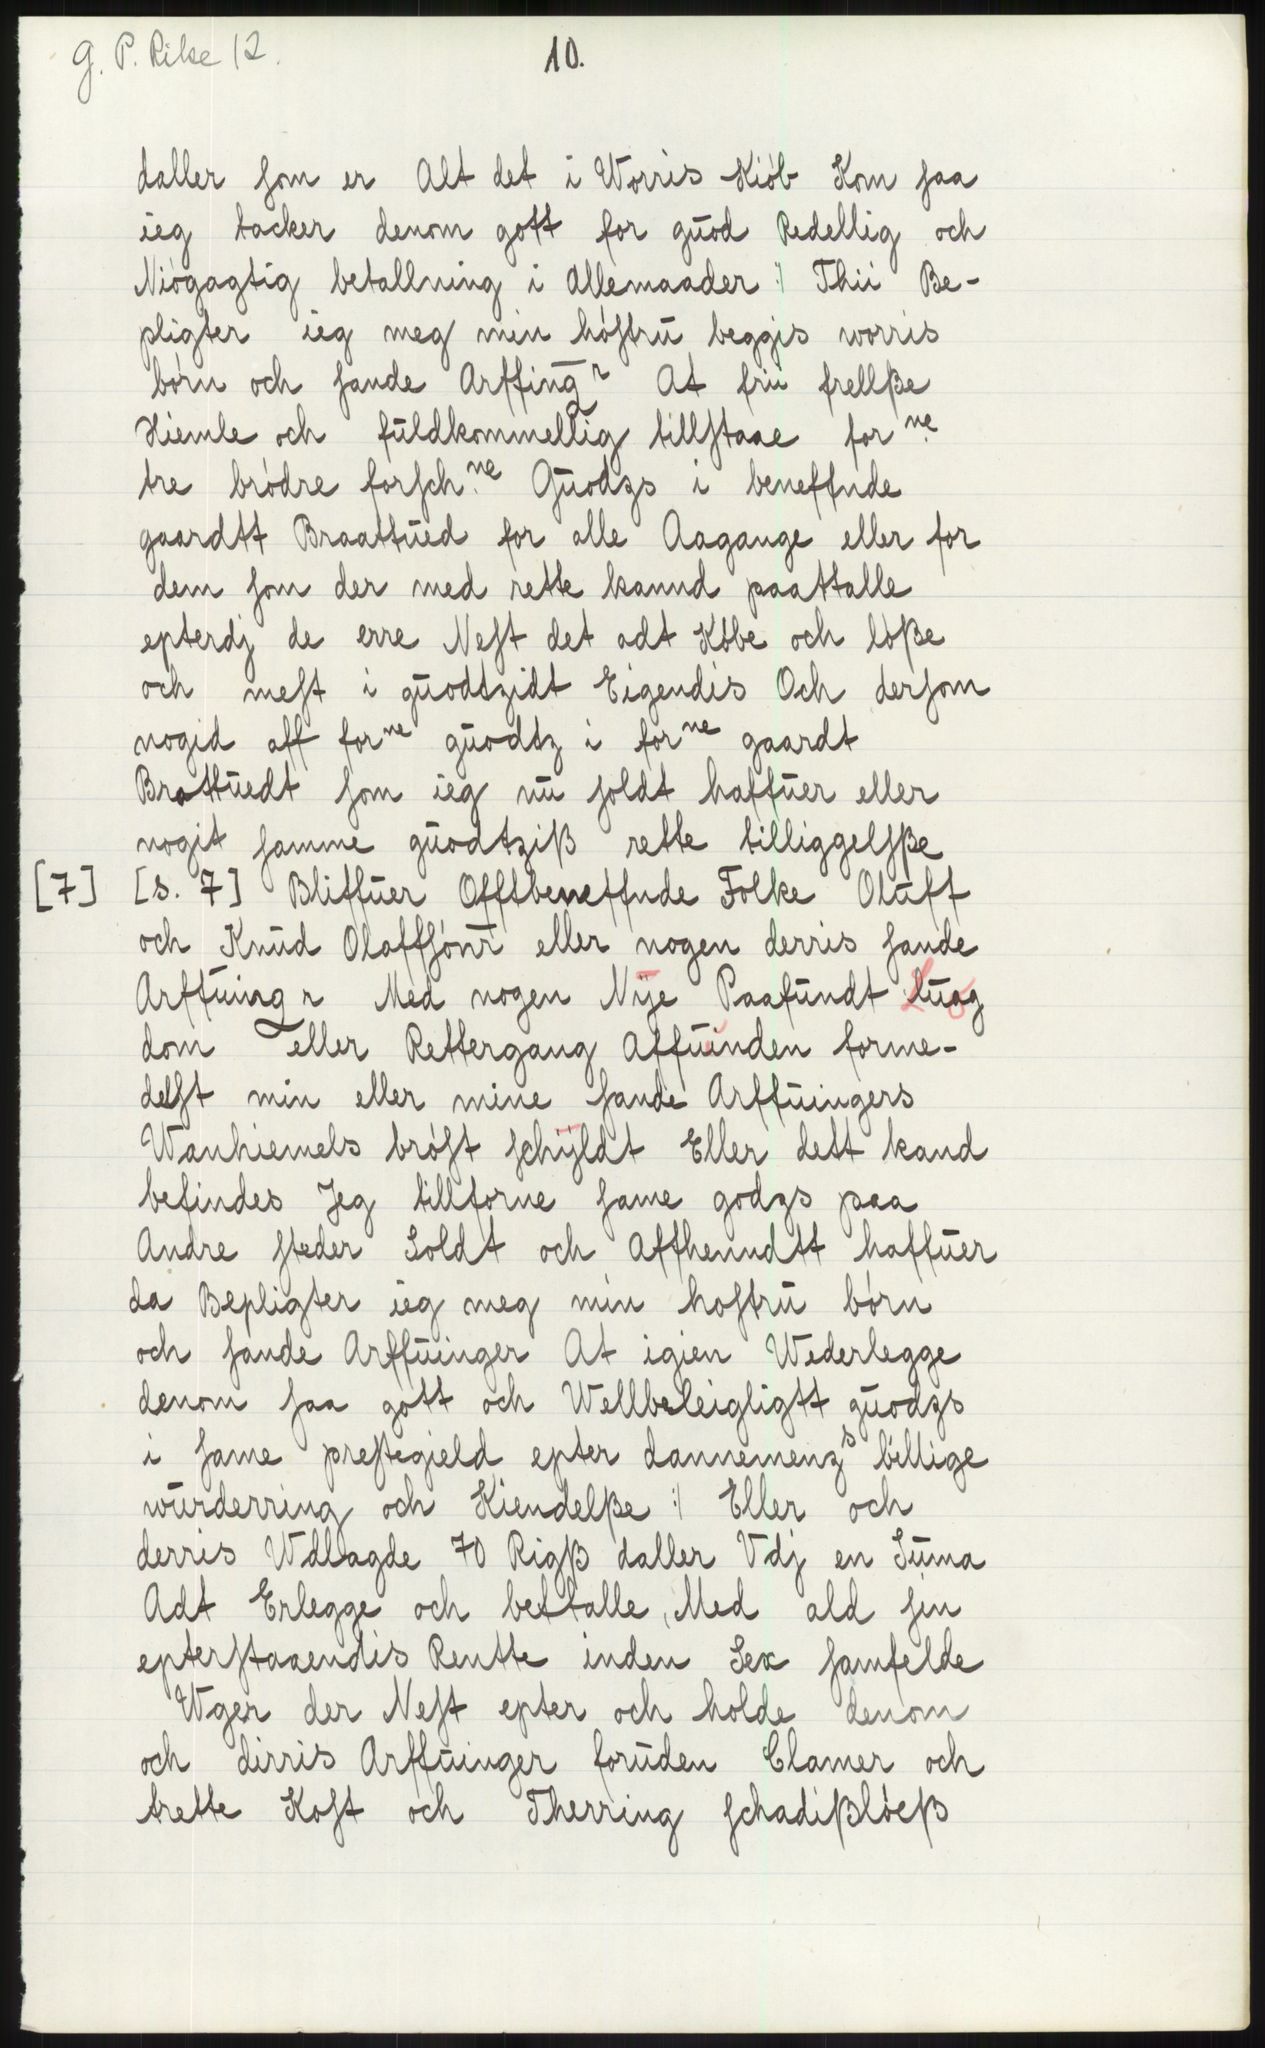 G. P. Rike 12.
10.
daller som er Alt det i Worris Kiöb Kom saa
ieg tacker denom gott for guod Redellig och
Niögagtig betallning i Allemaader :/ Thii Be-
pligter ieg meg min höstru beggis worris
börn och sande Arffing r At frii frellße
Hiemle och fuldkommellig tillstaae for ne
tre brödre forsch. ne Guodzs i beneffnde
gaardtt Braattued for alle Aagange eller for
dem som der med rette kannd paattalle
epterdj de erre Nest det adt Köbe och lösße
och mest i guodtzidt Eigendis Och dersom
nogid aff for ne guodtz i for ne gaardt
Brattuedt som ieg nu soldt haffuer eller
nogit samme guodtziß rette tilliggelsße
[7] [s. 7] Bliffuer Offtbeneffnde Folke Oluff
och Knud Olaffsönr eller nogen derris sande
Arffuing r Med nogen Nÿe Paafundt Luog
dom eller Rettergang Affuinden forme-
delst min eller mine sande Arffuingers
Wanhiemels bröst schÿldt Eller dett kand
befindes Jeg tillforne same godzs paa
Andre steder Soldt och Affhenndtt haffuer
da Bepligter ieg meg min hostru börn
och sande Arffuinger At igien Wederlegge
denom saa gott och Wellbeleigligtt guodzs
i same prestegield epter dannemenz s billige
wurderring och Kiendelße :/ Eller och
derris Wdlagde 70 Rigß daller Vdj en Suma
Adt Erlegge och bettalle, Med ald sin
epterstaaendis Rentte inden Sex samfelde
Wger der Nest epter och holde denom
och dirris Arffuinger foruden Clamer och
trette Kost och Therring schadißlöeß